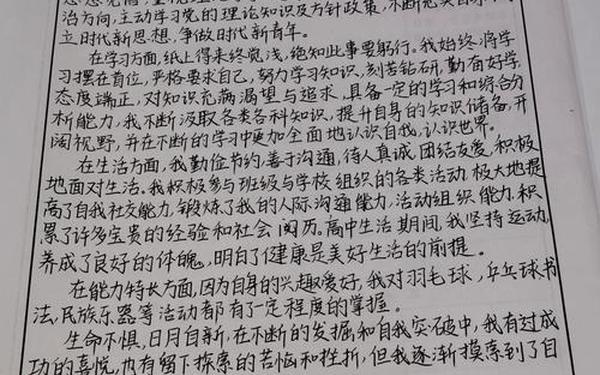 治方向,主动学习党的理论知识及方针政策,不断
立时代新思想、争做时代新青年。
在学习方面,纸上得来终觉浅,绝知此事要躬行。我始终将学
习摆在首位,严格要求自己,努力学习知识,刻苦钻研,勤奋好学,
态度端正,对知识充满渴望与追求,具备一定的学习和综合分
析能力,我不断汲取各类各科知识,提升自身的知识储备,开
阔视野,并在不断的学习中更加全面地认识自我,认识世界。
在生活方面,我勤俭节约,善于沟通,待人真诚,团结友爱,积极
地面对生活。我积极参与班级与学校组织的各类活动,极大地提
高了自我社交能力,锻炼了我的人际沟通能力,活动组织能力,积
累了许多宝贵的经验和社会阅历。高中生活期间,我坚持运动,
养成了良好的体魄,明白了健康是美好生活的前提。
在能力特长方面,因为自身的兴趣爱好,我对羽毛球,乒乓球书
法,民族乐器等活动都有了一定程度的掌握。
生命不惧,日月自新,在不断的发掘和自我突破中,我有过成
功的喜悦,也有留下探索的苦恼和挫折,但我逐渐摸索到了自